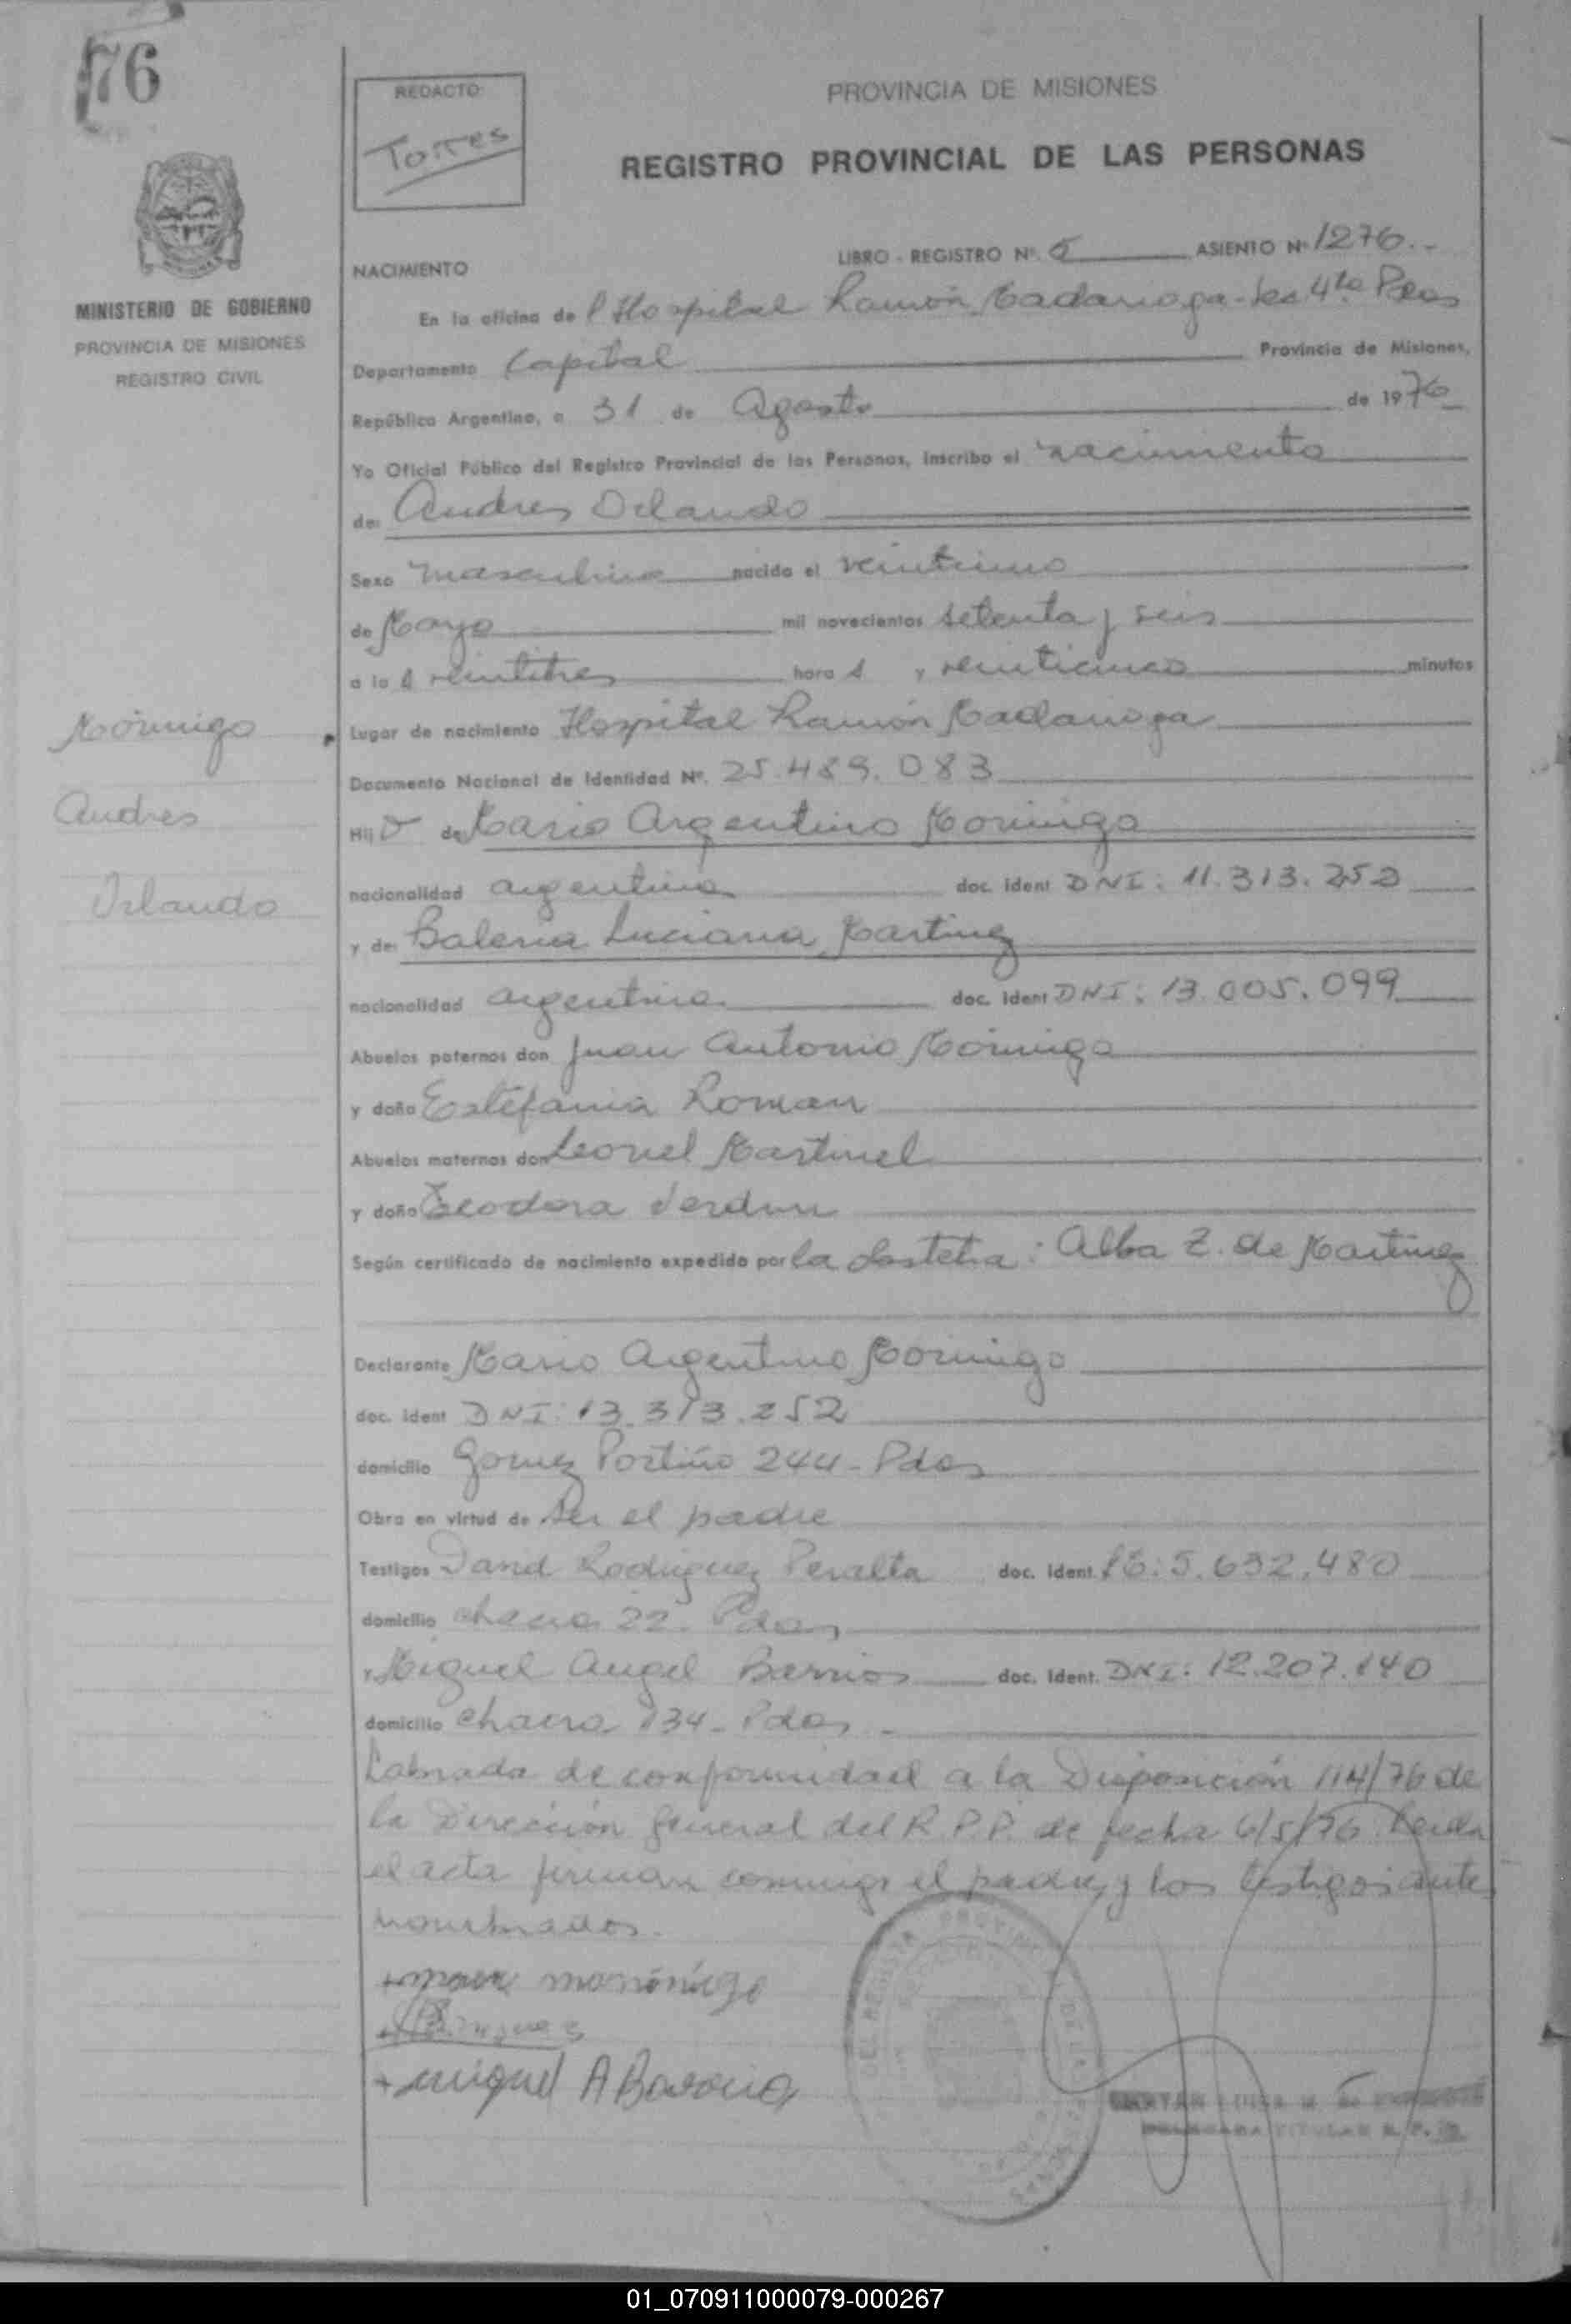 76
REDACTO:
Torres
PROVINCIA DE MISIONES
REGISTRO PROVINCIAL DE LAS PERSONAS
MINISTERIO DE GOBIERNO
PROVINCIA DE MISIONES
REGISTRO CIVIL
NACIMIENTO
LIBRO - REGISTRO Nº. 5 ASIENTO Nº 1276.-
En la oficina de l Hospital Ramón Madariaga - 4ta Pdas
Departamento Capital Provincia de Misiones,
República Argentina, a 31 de Agosto de 1976
Yo Oficial Público del Registro Provincial de las Personas, inscribo el nacimiento
de: Andres Orlando
Sexo masculino nacido el veintiuno
de Mayo mil novecientos setenta y seis
a la s veintitres hora s y veinticinco minutos
Lugar de nacimiento Hospital Ramón Madariaga
Morinigo
Andres
Orlando
Documento Nacional de Identidad Nº. 25.489.083
Hij o de Mario Argentino Morinigo
nacionalidad argentina doc. ident DNI: 11.313.252
y de: Baleria Luciana Martinez
nacionalidad argentina doc. ident DNI: 13.005.099
Abuelos paternos don Juan Antonio Morinigo
y doña Estefania Roman
Abuelos maternos don Leonel Martinel
y doña Teodora Verdun
Según certificado de nacimiento expedido por la obstetra: Alba Z. de Martinez
Declarante Mario Argentino Morinigo
doc. ident DNI: 13.313.252
domicilio Gomez Portiño 244 - Pdas
Obra en virtud de ser el padre
Testigos David Rodriguez Peralta doc. ident. LE: 5.632.480
domicilio chacra 22 - Pdas
y Miguel Angel Barrios doc. ident. DNI: 12.207.140
domicilio chacra 134 - Pdas -
Labrada de conformidad a la Disposición 114/76 de
la Dirección General del R.P.P. de fecha 6/5/76. Leida
el acta firman conmigo el padre y los testigos ante
nombrados.
morinigo
+ miguel A Barrio
DELEGADA TITULAR R. P. P.
01_070911000079-000267